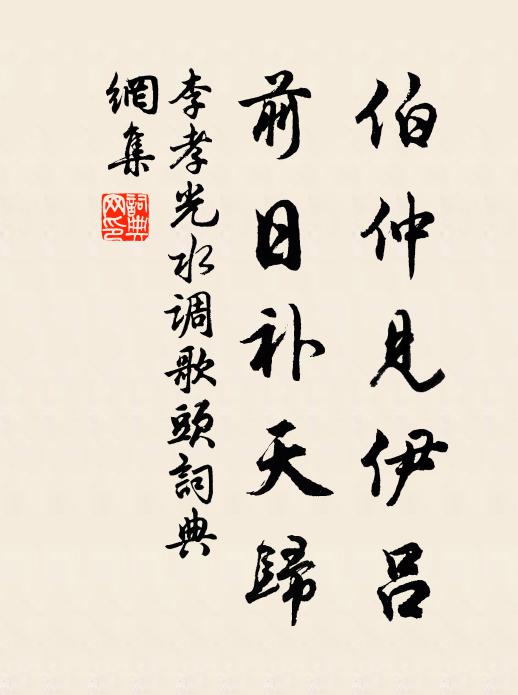 伯仲見伊吕
前日补天歸
李孝光水调歌頭詞典
網集
詞典
网印